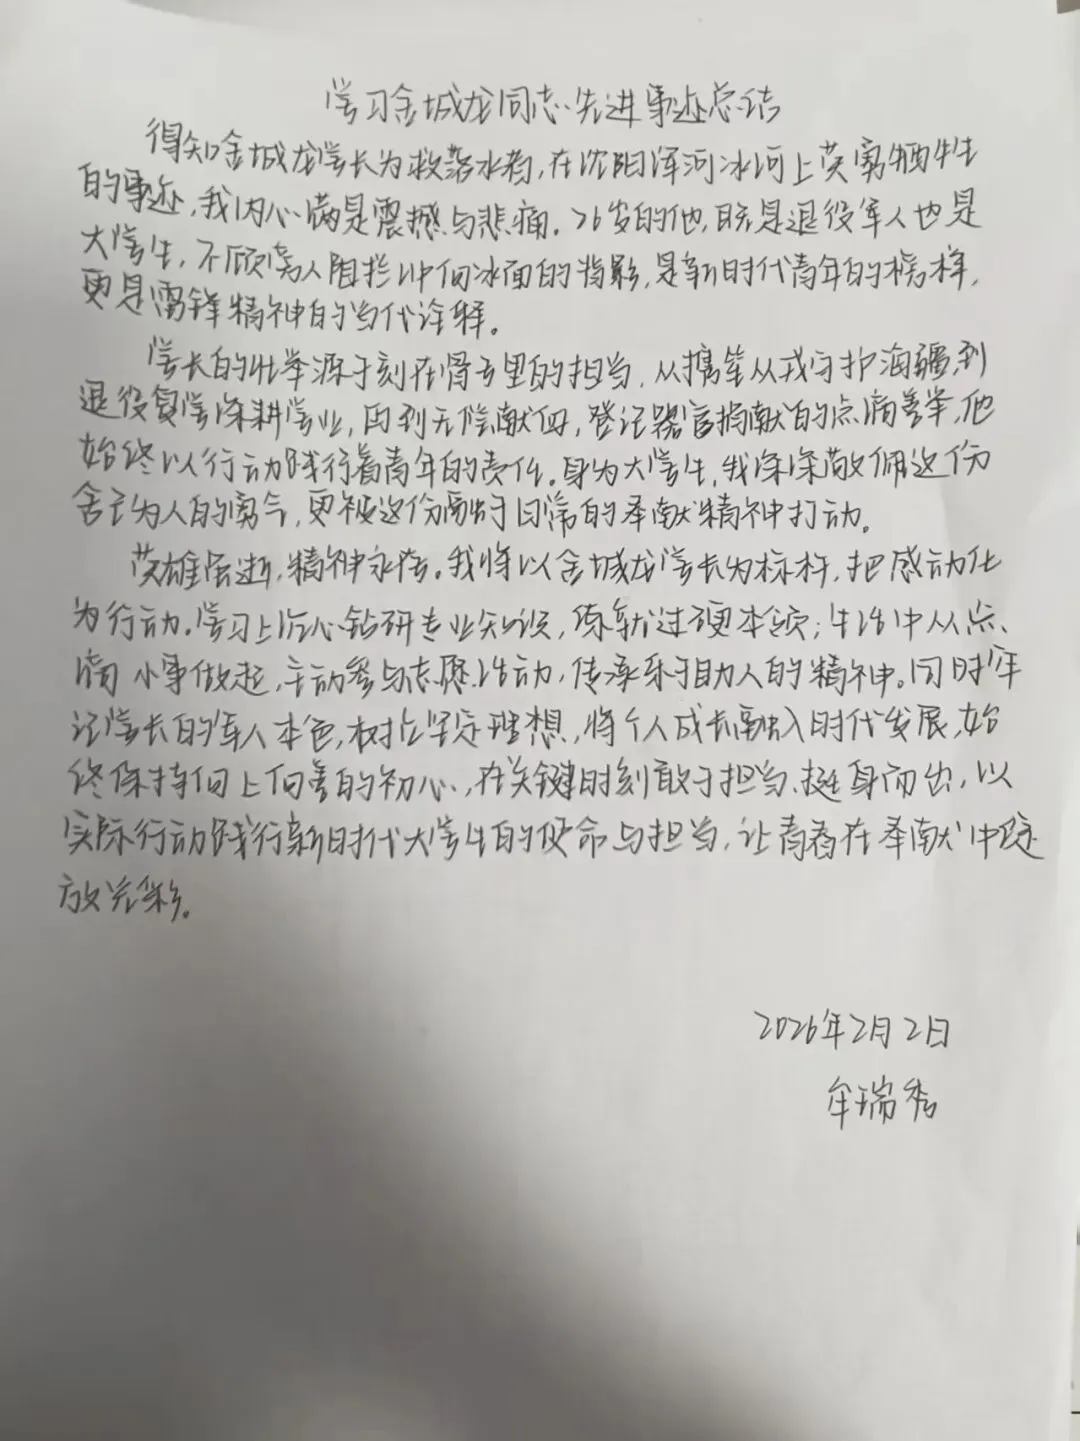 学习金城龙同志先进事迹总结
得知金城龙学长为救落水者,在沈阳浑河冰河上英勇牺牲
的事迹,我内心满是震撼与悲痛。26岁的他,既是退役军人也是
大学生,不顾旁人阻拦冲向冰面的背影,是新时代青年的榜样,
更是雷锋精神的当代诠释。
学长的壮举源于刻在骨子里的担当,从携笔从戎守护海疆,到
退役复学深耕学业,再到无偿献血,登记器官捐献的点滴善举,他
始终以行动践行着青年的责任。身为大学生,我深深敬佩这份
舍己为人的勇气,更被这份藏于日常的奉献精神打动。
英雄虽逝,精神永存。我将以金城龙学长为标杆,把感动化
为行动。学习上沉心钻研专业知识,练就过硬本领;生活中从点、
滴小事做起,主动参与志愿活动,传承乐于助人的精神。同时牢
记学长的军人本色,树立坚定理想,将个人成长融入时代发展,始
终保持向上向善的初心,在关键时刻敢于担当、挺身而出,以
实际行动践行新时代大学生的使命与担当,让青春在奉献中绽
放光彩。
2026年2月2日
牟瑞秀